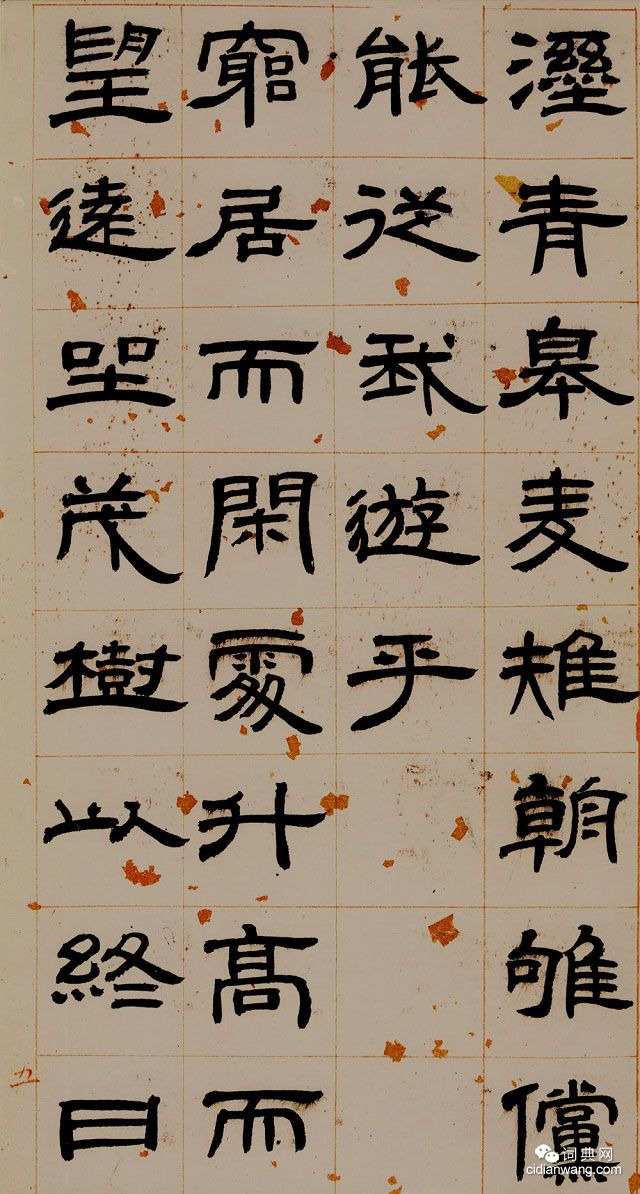 溼青皋麦雉朝雊儻
能從我遊乎
窮居而閑處升高而
望遠坐茂樹以終日
九
词典网
cidianwang.com